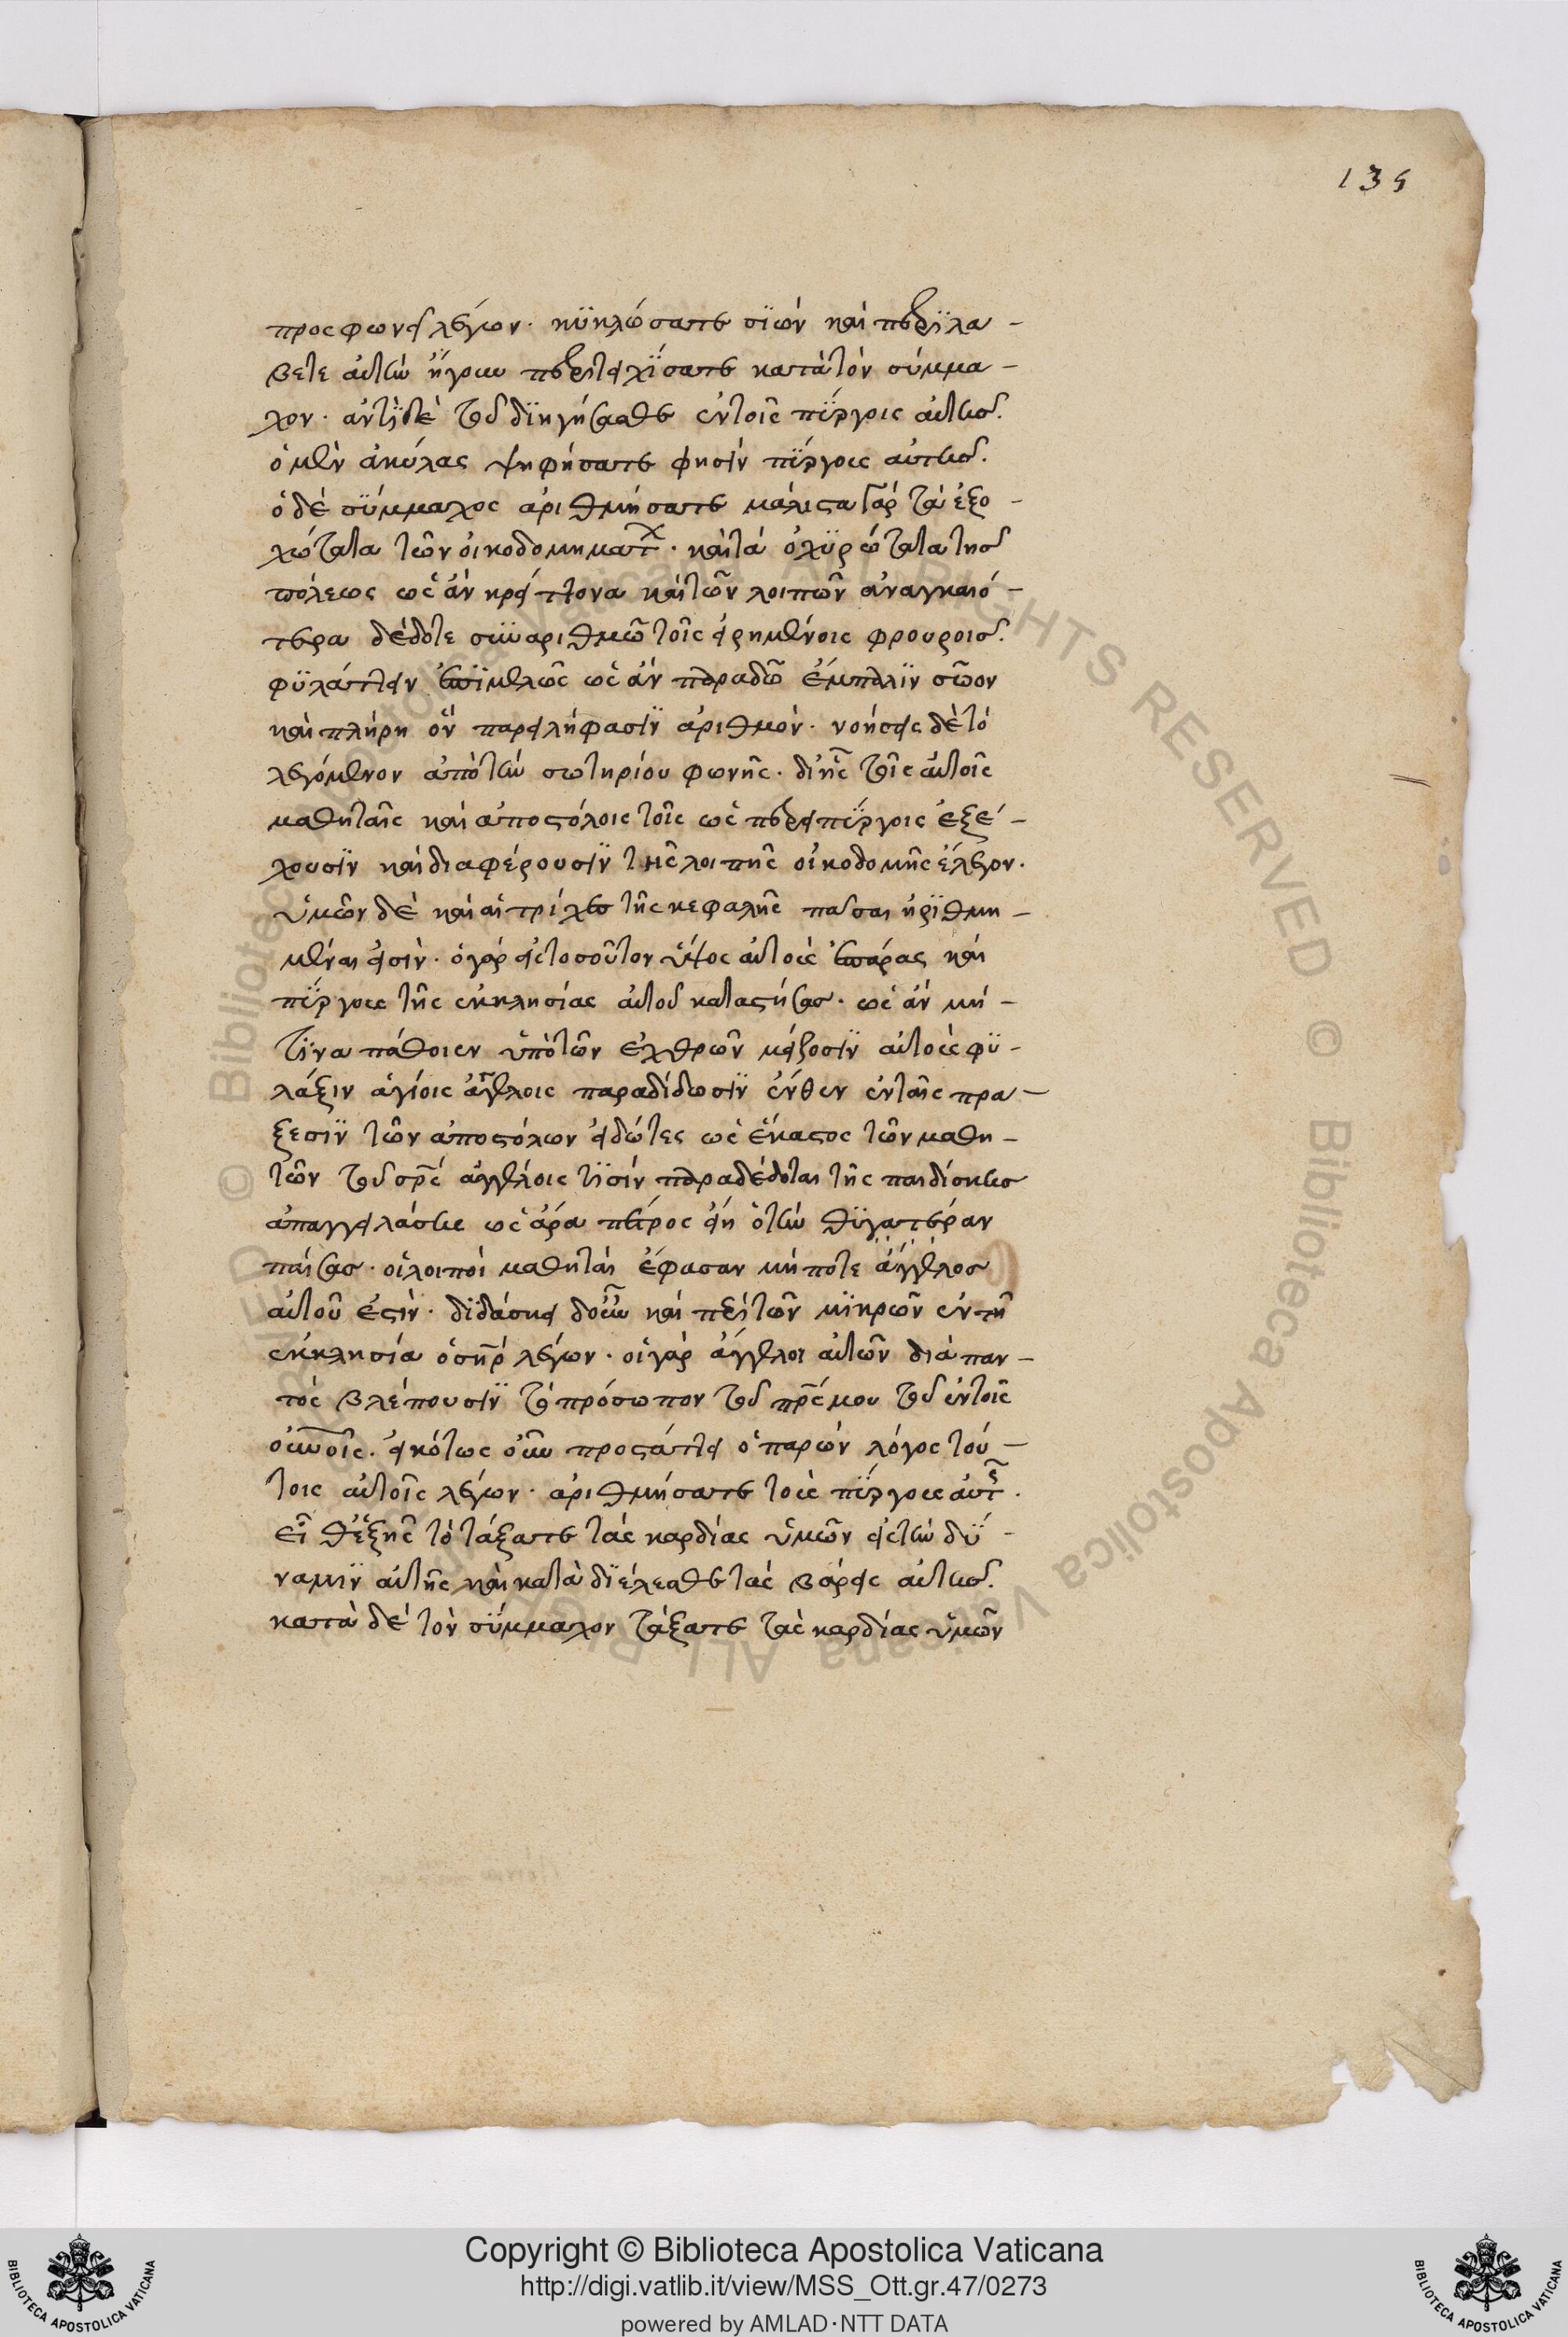 135
προσφωνεῖ λέγων· κϋκλώσατε σϊὼν καὶ περϊλα-
βετε αὐτὴν ἤγουν περιτειχΐσατε κατὰ τὸν σύμμα-
χον· ἀντϊ δὲ τοῦ δϊηγήσασθε ἐν τοῖς πΰργοις αὐτῆς.
ὁ μὲν ἀκύλας ψηφήσατε φησὶν πΰργους αὐτῆς.
ὁ δὲ σΰμμαχος ἀριθμήσατε μάλιστα γὰρ τὰ ἐξο-
χώτατα τῶν οἰκοδομημάτ · καὶ τὰ ὀχϋρώτατα τῆς
πόλεως ὡς ἂν κρείττονα καὶ τῶν λοιπῶν ἀναγκαιό-
τερα δέδοτε σὺν ἀριθμῶ τοῖς εἰρημένοις φρουροῖς.
φϋλάττειν ἐπϊμελῶς ὡς ἂν παραδῶ ἔμπαλϊν σῶον
καὶ πλήρη ὃν παρειλήφασϊν ἀριθμὸν· νοήσεις δὲ τὸ
λεγόμενον ἀπὸ τῆς σωτηρίου φωνῆς· δι' ἧς τοῖς αὐτοῖς
μαθηταῖς καὶ ἀποστόλοις τοῖς ὡσπερεὶ πΰργοις ἐξέ-
χουσϊν καὶ διαφέρουσϊν τῆς λοιπῆς οἰκοδομῆς ἔλεγον.
ὑμῶν δὲ καὶ αἱ τρίχες τῆς κεφαλῆς πᾶσαι ἠρϊθμη-
μέναι εἰσὶν· ὁ γὰρ εἰς τοσοῦτον ὕψος αὐτοὺς ἐπάρας καὶ
πΰργους τῆς ἐκκλησίας αὐτοῦ καταστήσας· ὡς ἂν μή-
τϊνα πάθοιεν ὑπὸ τῶν ἐχθρῶν μείζοσϊν αὐτοὺς φϋ-
λάξιν ἁγίοις ἀγγέλοις παραδίδωσϊν ἔνθεν ἐν ταῖς πρα-
ξεσϊν τῶν ἀποστόλων εἰδότες ὡς ἕκαστος τῶν μαθη-
τῶν τοῦ σρς ἀγγέλοις τϊσὶν παραδέδοται τῆς παιδίσκης
ἀπαγγειλάσης ὡς ἄρα πέτρος εἴη ὁ τὴν θϋγατέραν
παίσας· οἱ λοιποὶ μαθηταὶ ἔφασαν μήποτε ἄγγελος
αὐτοῦ ἐστὶν· δϊδάσκει δ' οὖν καὶ περὶ τῶν μϊκρῶν ἐν τῆ
ἐκκλησία ὁ σηρ λέγων· οἱ γὰρ ἄγγελοι αὐτῶν διὰ παν-
τὸς βλέπουσϊν τὸ πρόσωπον τοῦ πρς μου τοῦ ἐν τοῖς
οὐνοῖς. εἰκότως οὖν προστάττει ὁ παρὼν λόγος τού-
τοις αὐτοῖς λέγων· ἀριθμήσατε τοὺς πΰργους αὐτ.
εἶθ' ἑξῆς τὸ τάξατε τὰς καρδίας ὑμῶν εἰς τὴν δΰ-
ναμϊν αὐτῆς καὶ καταδϊέλεσθε τὰς βάρεις αὐτῆς.
κατὰ δὲ τὸν σΰμμαχον τάξατε τὰς καρδίας ὑμῶν
© Biblioteca Apostolica Vaticana ALL RIGHTS RESERVED
Copyright © Biblioteca Apostolica Vaticana
http://digi.vatlib.it/view/MSS_Ott.gr.47/0273
powered by AMLAD·NTT DATA
BIBLIOTECA APOSTOLICA VATICANA
BIBLIOTECA APOSTOLICA VATICANA